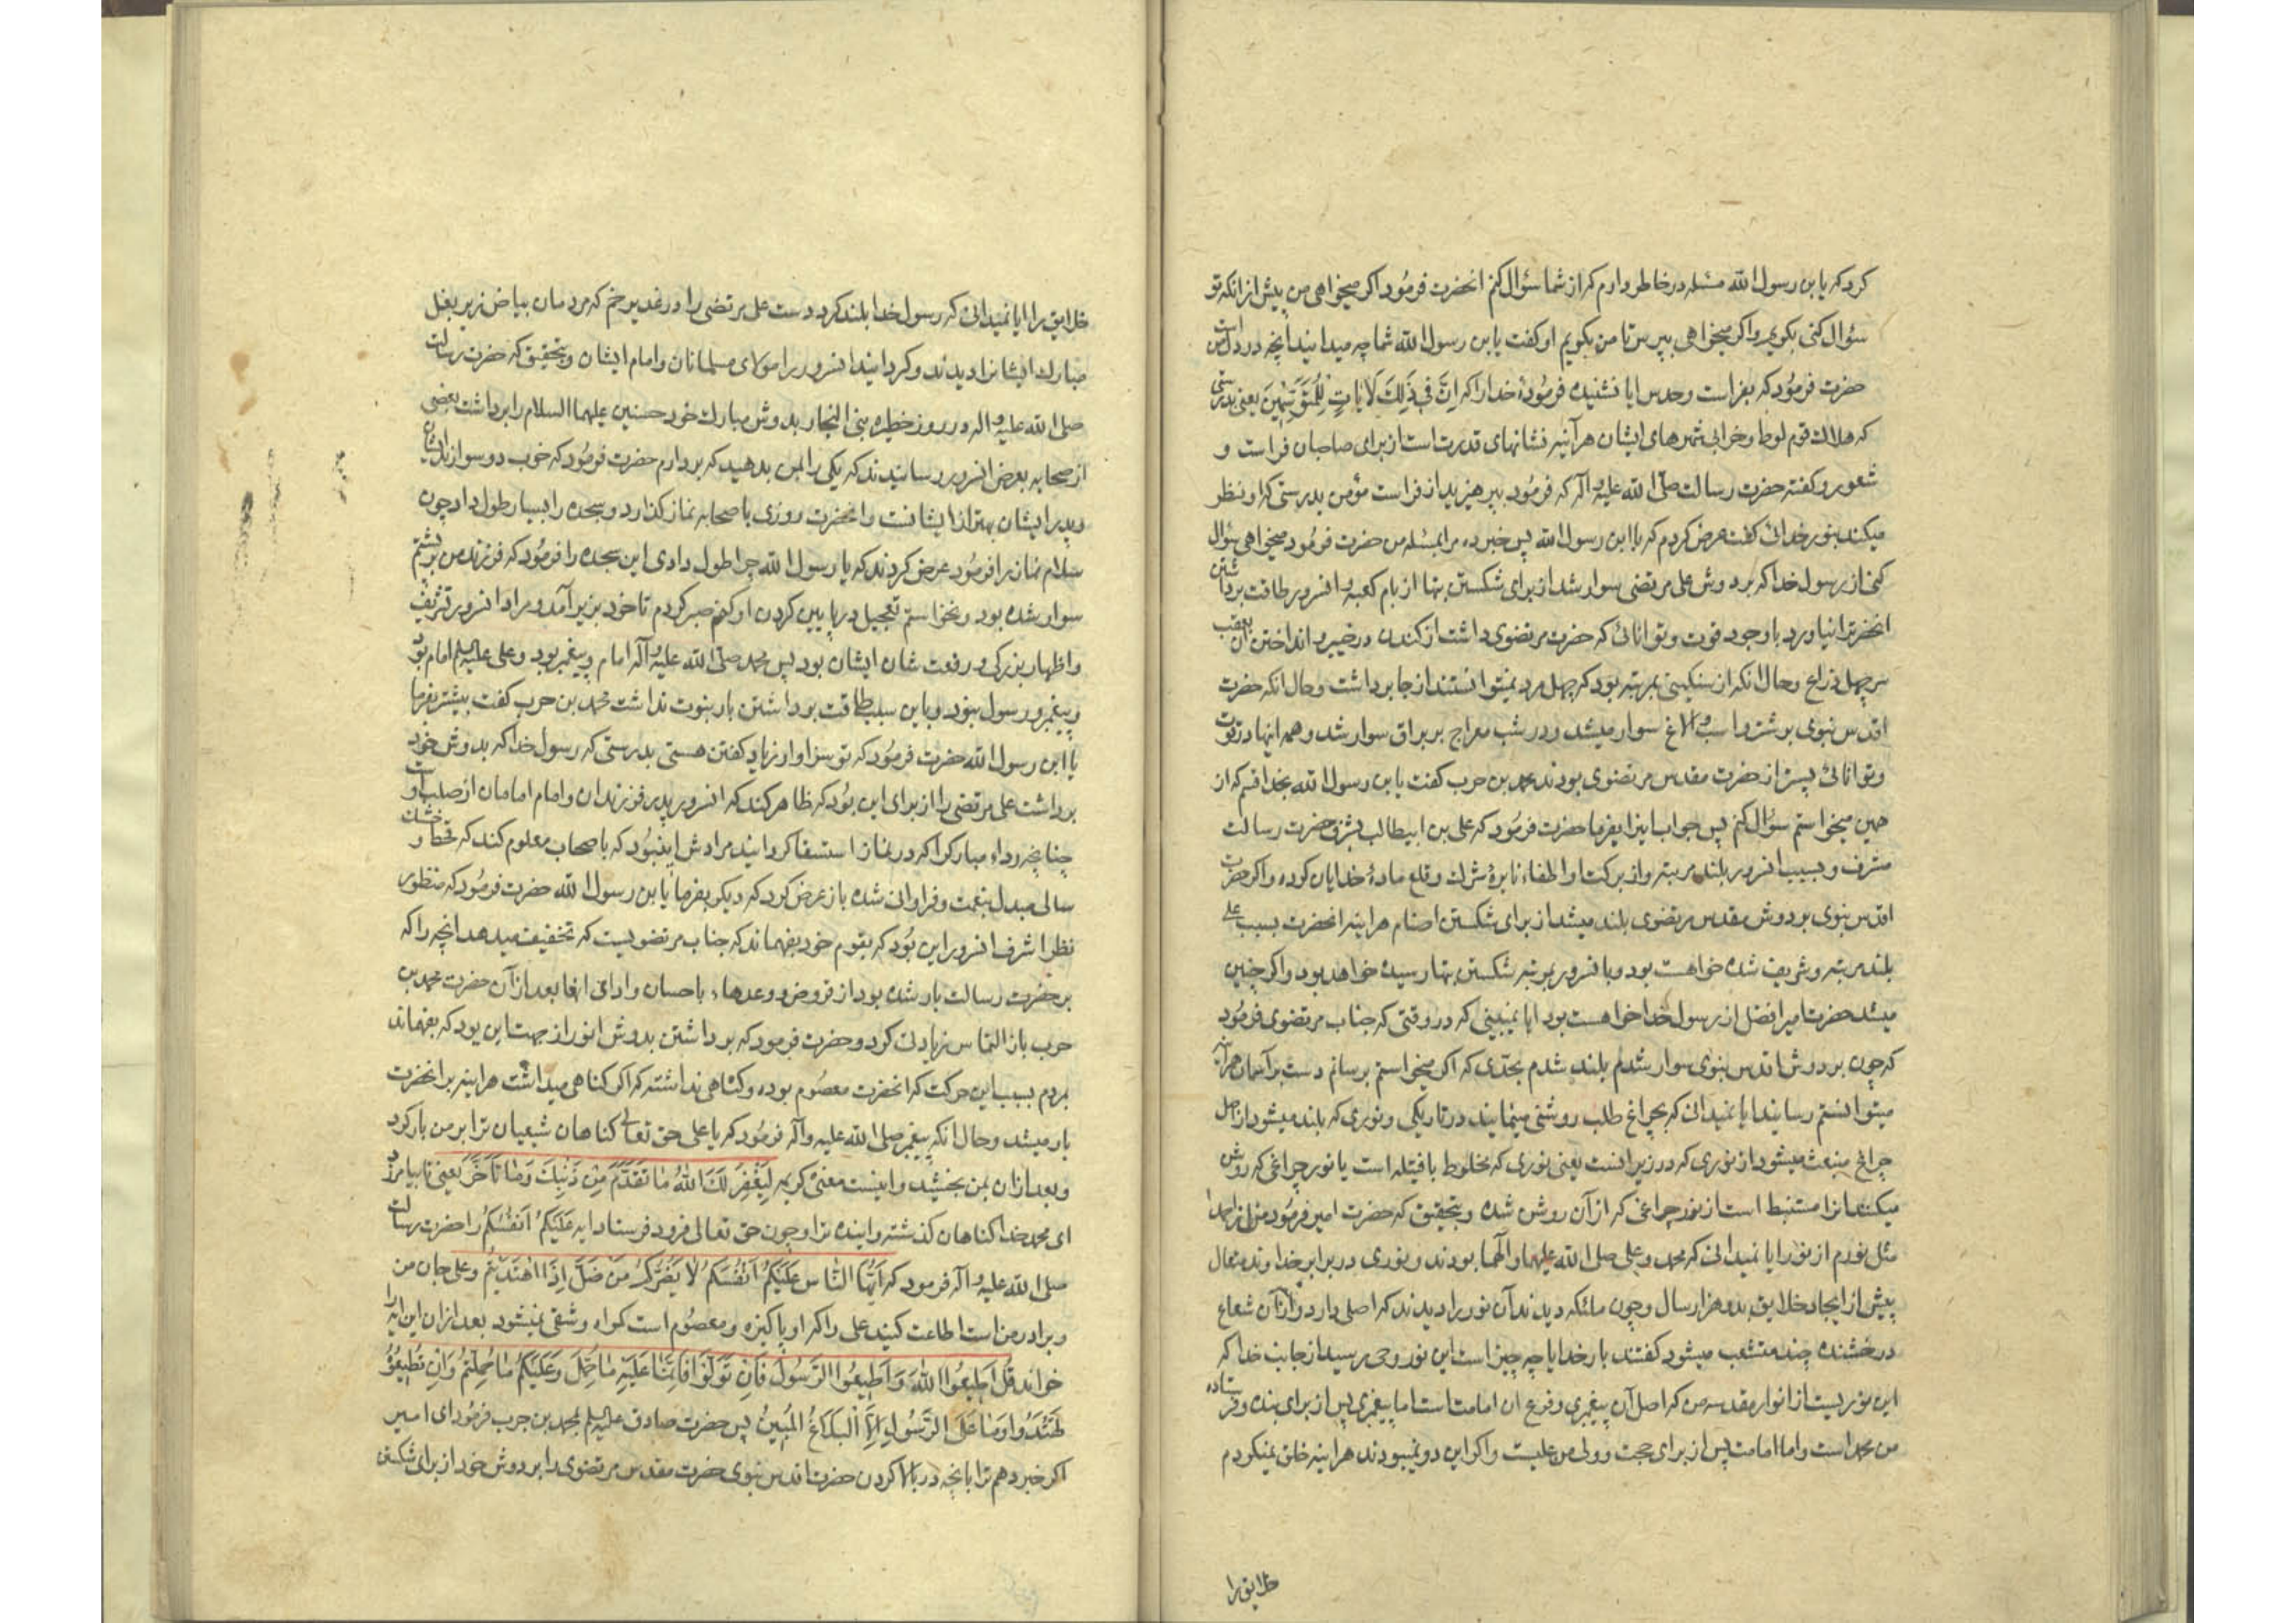 کرد که یا بن رسول الله مسئله در خاطر دارم که از شما سؤال کنم انحضرت فرمُود اکر میخواهی من پیش از انکه تو
سؤال کنی بکویم و اکر میخواهی بپرس تا من بکویم او کفت یا بن رسول الله شما چه میدانید انچه در دل من است
حضرت فرمُود که بفراست و حدس ایا نشنیده فرمُودهٔ خدا را که اِنَّ فِی ذَلِکَ لَایَاتٍ لِلْمُتَوَسِّمِینَ یعنی بدرستی
که هلاك قوم لوط و خرابی شهرهای ایشان هرآینه نشانهای قدرت است از برای صاحبان فراست و
شعور و کفته حضرت رسالت صلّی الله علیه و آله که فرمُود بپرهیزید از فراست مؤمن بدرستی که او نظر
میکند بنور خدائی کفت عرض کردم که یا ابن رسول الله پس خبر ده مرا بمسئله من حضرت فرمُود میخواهی سؤال
کنی از رسول خدا که بر دوش علی مرتضی سوار نشد از برای شکستن بتها از بام کعبه و افسرور طاقت برداشتن
انحضرترا نیاورد با وجود قوت و توانائی که حضرت مرتضوی داشت از کندن در خیبر و انداختن آن بعقب
سر چهل ذراع و حال انکه از سنکینی بمرتبه بود که چهل مرد نمیتوانستند از جا برداشت و حال انکه حضرت
اقدس نبوی بر شتر و اسب و الاغ سوار میشد و در شب معراج بر براق سوار شد و همه اینها در قوت
و توانائی پستر از حضرت مقدس مرتضوی بودند محمد بن حرب کفت یا بن رسول الله بخدا قسم که از
همین میخواستم سؤال کنم پس جواب اینرا بفرما حضرت فرمُود که علی بن ابیطالب بشرف حضرت رسالت
مشرف و بسبب انسرور بلند مرتبه و از برکت او اطفاء نایرهٔ شرك و قلع مادهٔ خدایان کرده و اکر حضرت
اقدس نبوی بر دوش مقدس مرتضوی بلند میشد از برای شکستن اصنام هراینه انحضرت بسبب علی
بلند مرتبه و شریف شده خواهست بود و با انسرور بمرتبه شکستن بتها رسیده خواهد بود و اکر چنین
میشد حضرت امیر افضل از رسول خدا خواهست بود ایا نمیبینی که در وقتی که جناب مرتضوی فرمُود
که چون بر دوش اقدس نبوی سوار شدم بلند شدم بحدّی که اکر میخواستم برسانم دست بر آسمان هرآینه
میتوانستم رسانید ایا نمیدانی که بچراغ طلب روشنی مینمایند در تاریکی و نوری که بلند میشود از اصل
چراغ منبعث میشود از نوری که در زیر انست یعنی نوری که مخلوط بافتیله است یا نور چراغی که روشن
میکنند انرا مستنبط است از نور چراغی که از آن روشن شده و بتحقیق که حضرت امیر فرمُود من از احمد
مثل نورم از نور ایا نمیدانی که محمد و علی صلی الله علیهما و آلهما بودند و نوری در برابر خداوند متعال
پیش از ایجاد خلایق بدو هزار سال و چون ملئکه دیدند آن نور را دیدند که اصلی دارد و از آن شعاع
درخشنده چند منشعب میشود کفتند بار خدایا چه چیز است این نور وحی رسید از جانب خدا که
این نوریست از انوار مقدسه من که اصل آن پیغمبری و فرع ان امامت است اما پیغمبری پس از برای بنده و فرستاده
من محمد است و اما امامت پس از برای حجت و ولی من علیست و اکر این دو نمیبودند هراینه خلق نمیکردم
خلایق را
خلایق را ایا نمیدانی که رسول خدا بلند کرد دست علی مرتضی را در غدیر خم که مردمان بیاض زیر بغل
مبارك ایشانرا دیدند و کردانید انسرور را مولای مسلمانان و امام ایشان و بتحقیق که حضرت رسالت
صلی الله علیه و اله در روز خطیره بنی النجار بدوش مبارك خود حسنین علیهما السلام را برداشت بعضی
از صحابه بعرض انسرور رسانیدند که یکی را بمن بدهید که بردارم حضرت فرمُود که خوب دو سوارند ایشان
و پدر ایشان بهتر از ایشانست و انحضرت روزی با صحابه نماز کذارد و سجده را بسیار طول داد چون
سلام نماز را فرمُود عرض کردند که یا رسول الله چرا طول دادی این سجده را فرمُود که فرزند من بر پشتم
سوار شده بود و نخواستم تعجیل در پایین کردن او کنم صبر کردم تا خود بزیر آمد و مراد انسرور تشریف
و اظهار بزرکی و رفعت شان ایشان بود پس محمد صلّی الله علیه و آله امام و پیغمبر بود و علی علیه السلم امام بود
و پیغمبر و رسول نبود و باین سبب طاقت برداشتن بار نبوت نداشت محمد بن حرب کفت بیشتر بفرما
یا ابن رسول الله حضرت فرمُود که تو سزاوار زیاد کفتن هستی بدرستی که رسول خدا که بدوش خود
برداشت علی مرتضی را از برای این بُود که ظاهر کند که انسرور پدر فرزندان و امام امامان از صلب او است
چنانچه رداء مبارکرا که در نماز استسقا کردانید مرادش این بُود که باصحاب معلوم کند که قحط و خشك
سالی مبدل بنعمت و فراوانی شده باز عرض کرد که دیکر بفرما یا بن رسول الله حضرت فرمُود که منظور
نظر اشرف انسرور این بُود که بقوم خود بفهماند که جناب مرتضویست که تخفیف میدهد انچه را که
بر حضرت رسالت بار شده بود از قروض و وعدهاء باحسان و ادای انها بعد از آن حضرت محمد بن
حرب باز التماس زیادتی کرد و حضرت فرمود که برداشتن بدوش انور از جهت این بود که بفهماند
بردم بسبب این حرکت که انحضرت معصُوم بوده و کناهی نداشته که اکر کناهی میداشت هراینه بر انحضرت
بار میشد و حال انکه پیغمبر صلی الله علیه و آله فرمُود که یا علی حق تعالی کناهان شیعیان ترا بر من بار کرد
و بعد از ان بمن بخشید و اینست معنی کریمه لِیَغْفِرَ لَكَ اللهُ مَا تَقَدَّمَ مِنْ ذَنْبِكَ وَمَا تَأَخَّرَ یعنی تا بیامرزد
ای محمد خدا کناهان کذشته و ایندهٔ ترا و چون حق تعالی فرو فرستاد ایه عَلَیْکُمْ اَنْفُسَکُمْ را حضرت رسالت
صلی الله علیه و اله فرمود که اَیُّهَا النَّاس عَلَیْکُمْ اَنْفُسَکُمْ لَا یَضُرُّکُمْ مَنْ ضَلَّ اِذَا اهْتَدَیْتُمْ و علی جان من
و برادر من است اطاعت کنید علی را که او پاکیزه و معصُوم است کمراه و شقی نمیشود بعد از ان این ایه را
خواند قُلْ اَطِیعُوا اللهَ وَاَطِیعُوا الرَّسُولَ فَاِنْ تَوَلَّوْا فَاِنَّمَا عَلَیْهِ مَا حُمِّلَ وَعَلَیْکُمْ مَا حُمِّلْتُمْ وَاِنْ تُطِیعُوهُ
تَهْتَدُوا وَمَا عَلَی الرَّسُولِ اِلَّا الْبَلَاغُ الْمُبِینُ پس حضرت صادق علیه السلم بمحمد بن حرب فرمُود ای امیر
اکر خبر دهم ترا بانچه در بالا کردن حضرت اقدس نبوی حضرت مقدس مرتضوی را بر دوش خود از برای شکستن